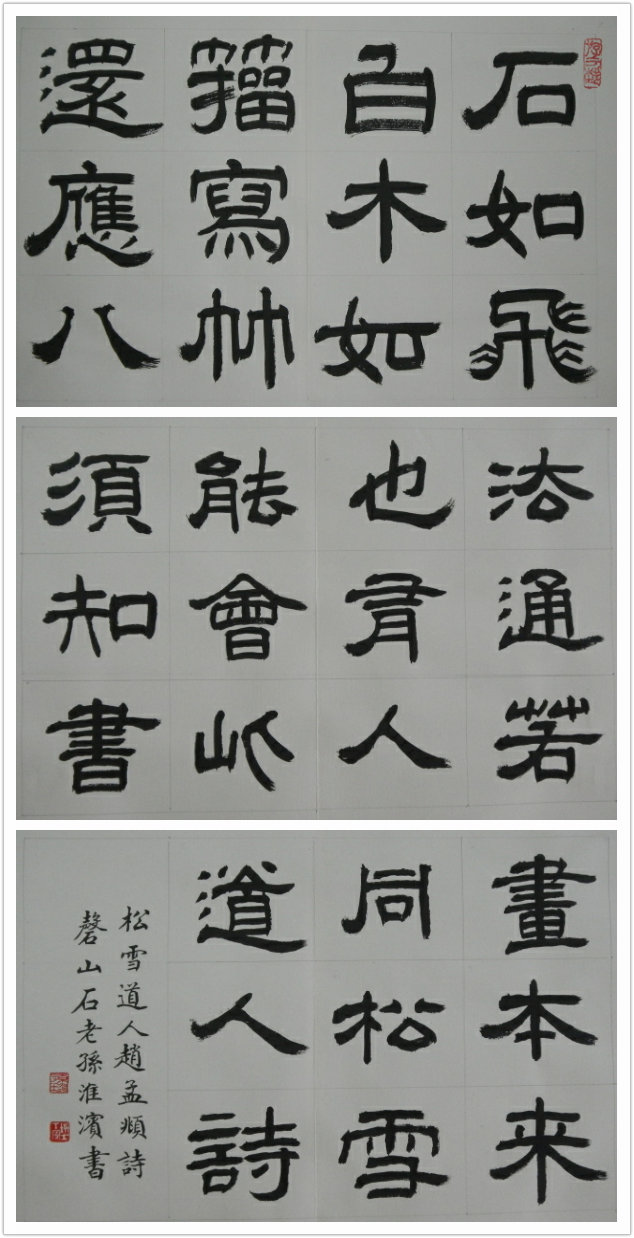 石如飛
白木如
籕寫竹
還應八
法通若
也有人
能會此
須知書
畫本来
同松雪
道人詩
松雪道人趙孟頫詩
磬山石老孫淮濱書